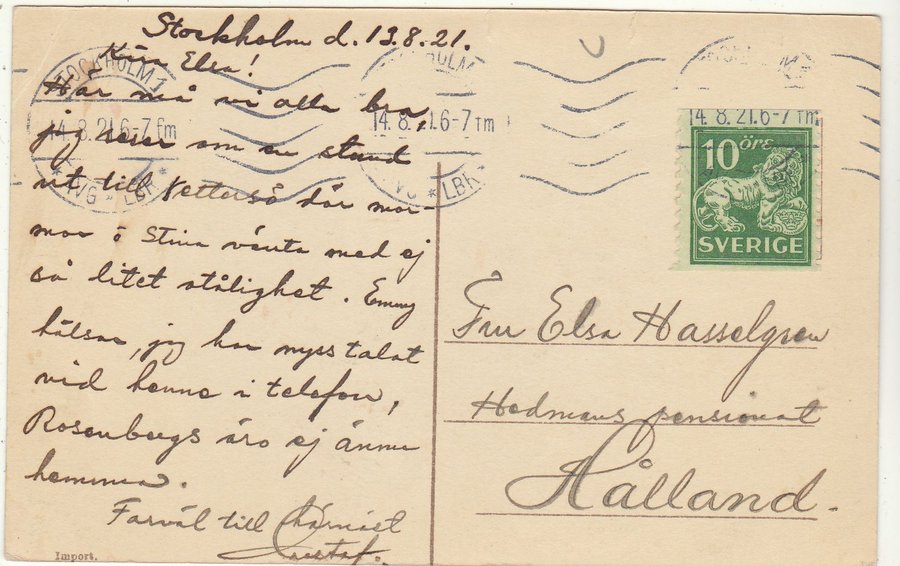 Stockholm d. 13.8.21.
Kära Elsa!
Här må vi alla bra,
jag reser om en stund
ut till Vettersö där mor-
mor o Stina vänta med ej
så litet otålighet. Emmy
hälsar, jag har nyss talat
vid henne i telefon,
Rosenbergs äro ej ännu
hemma.
Farväl till härnäst
Gustaf.
Import.
STOCKHOLM 1
14.8.21.6-7 fm
*AVG*LBR*
14.8.21.6-7 fm
LBR
14.8.21.6-7 fm
10 ÖRE
SVERIGE
Fru Elsa Hasselgren
Hedmans pensionat
Hålland.